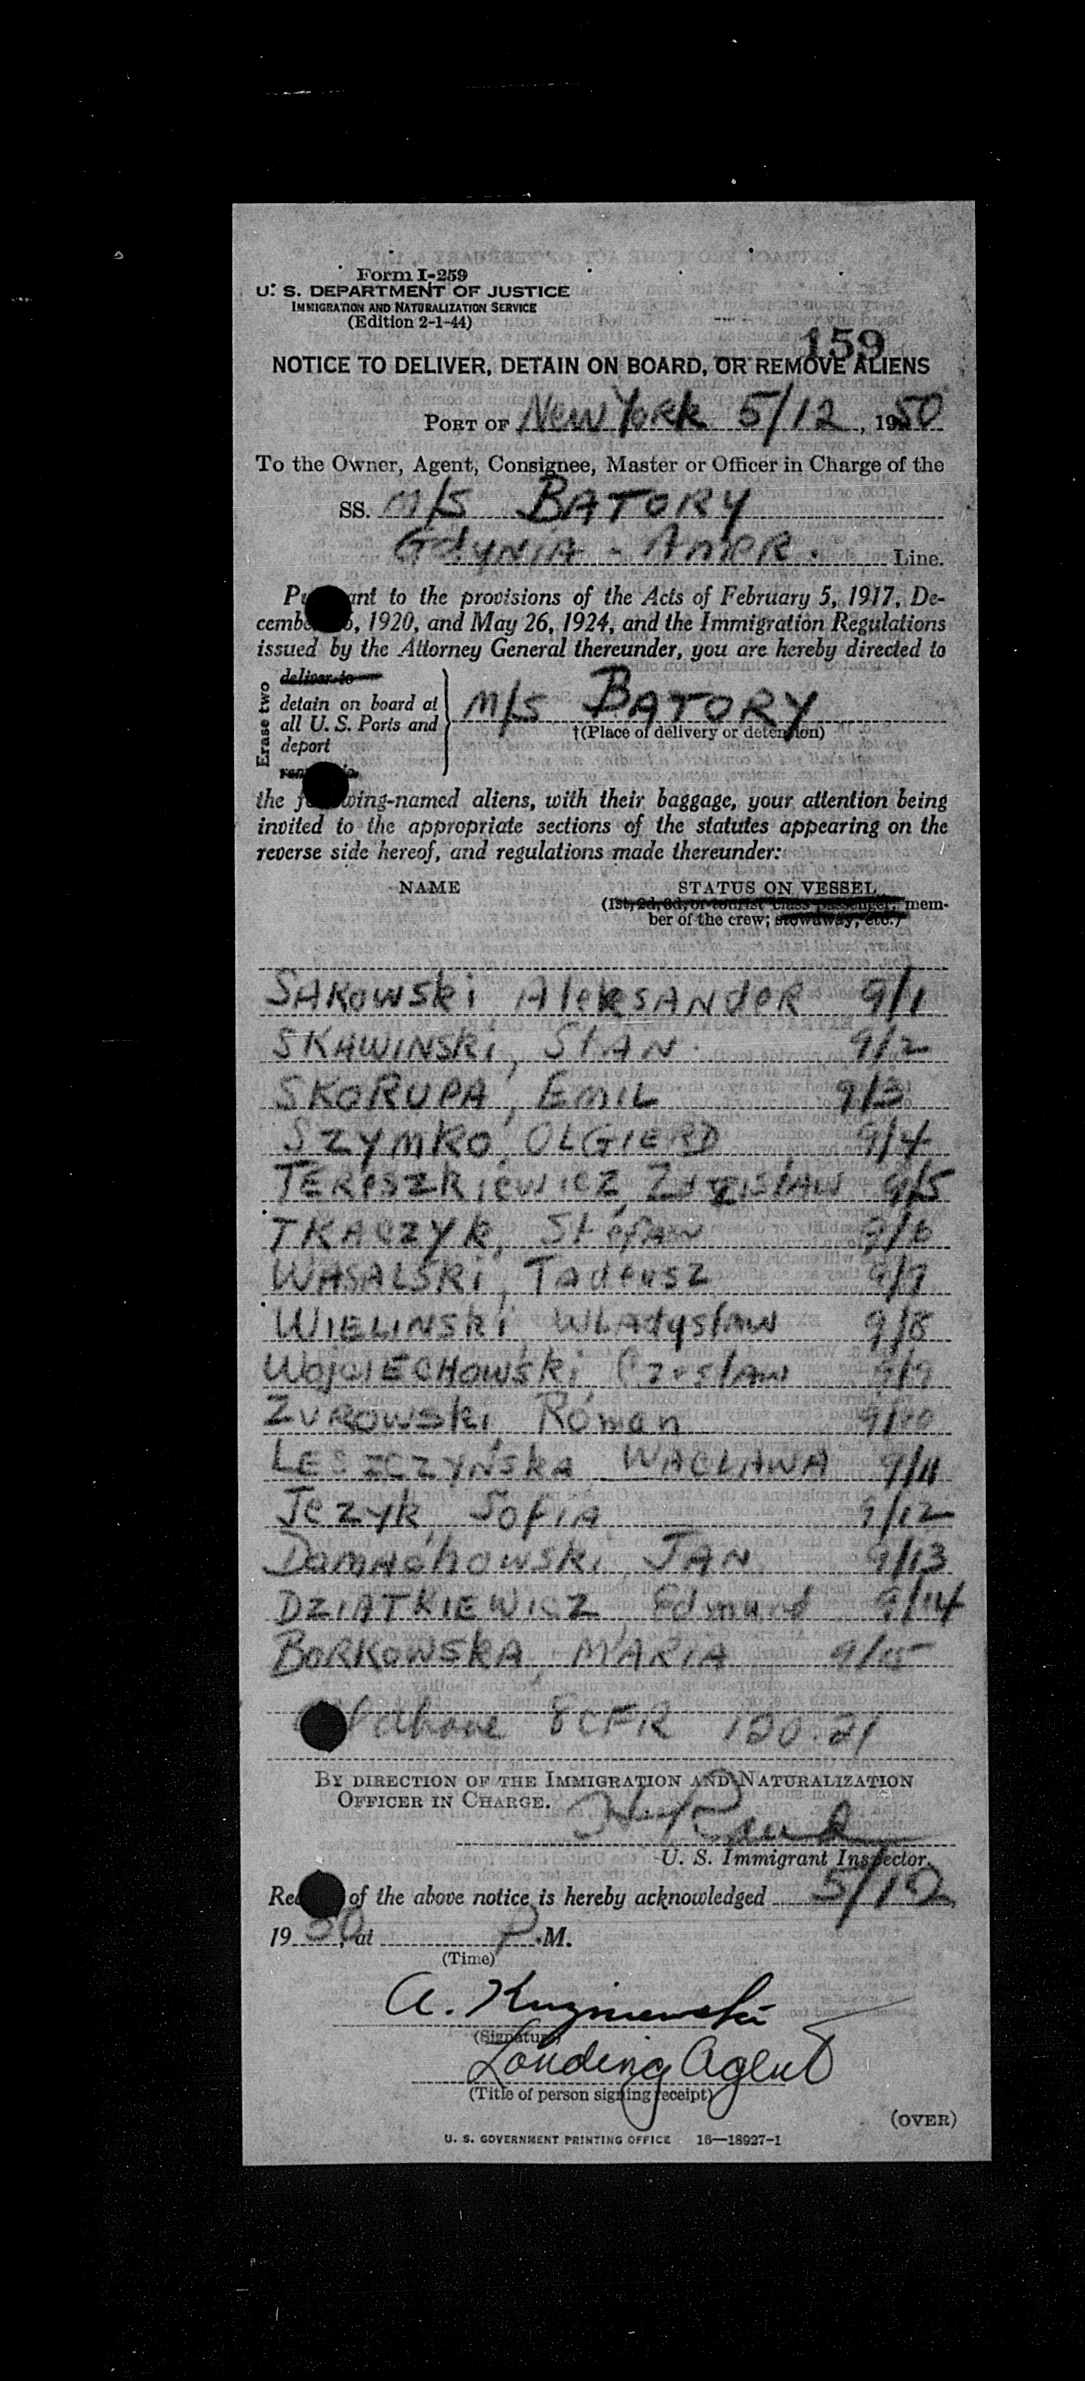 Form I-259
U. S. DEPARTMENT OF JUSTICE
IMMIGRATION AND NATURALIZATION SERVICE
(Edition 2-1-44)
159
NOTICE TO DELIVER, DETAIN ON BOARD, OR REMOVE ALIENS
PORT OF New York 5/12, 1950
To the Owner, Agent, Consignee, Master or Officer in Charge of the
SS. M/S BATORY
GdyNIA - AmeR. Line.
Pursuant to the provisions of the Acts of February 5, 1917, De-
cember 5, 1920, and May 26, 1924, and the Immigration Regulations
issued by the Attorney General thereunder, you are hereby directed to
Erase two
deliver to
detain on board at
all U. S. Ports and
deport
M/S BATORY
†(Place of delivery or detention)
the following-named aliens, with their baggage, your attention being
invited to the appropriate sections of the statutes appearing on the
reverse side hereof, and regulations made thereunder:
NAME STATUS ON VESSEL
(1st, 2d, 3d, or tourist class passenger, mem-
ber of the crew; stowaway, etc.)
SAKowski AleksANdeR 9/1
SKAWINSKi, StAN. 9/2
SKORUPA, EmiL 9/3
SZYMKO, OLGIERD 9/4
TEReszkiewicz 9/5
TKACZYK, StefAN 9/6
WASALSKi, Tadeusz 9/7
WIELINSki WLAdyslAW 9/8
WOJCIECHOWSKi, CzeslAW 9/9
ZUROWSki, Roman 9/10
LESZCZYŃska WACLAWA 9/11
JeZYk, SOFIA 9/12
DomAchowski, JAN 9/13
DZIATKIEWICZ, Edmund 9/14
BORKOWSKA, MARIA 9/15
above 8 CFR 120.21
BY DIRECTION OF THE IMMIGRATION AND NATURALIZATION
OFFICER IN CHARGE.
U. S. Immigrant Inspector.
Receipt of the above notice is hereby acknowledged 5/12,
1950, at P.M.
(Time)
A. Kuzniewski
(Signature)
Landing Agent
(Title of person signing receipt)
(OVER)
U. S. GOVERNMENT PRINTING OFFICE 16—18927-1